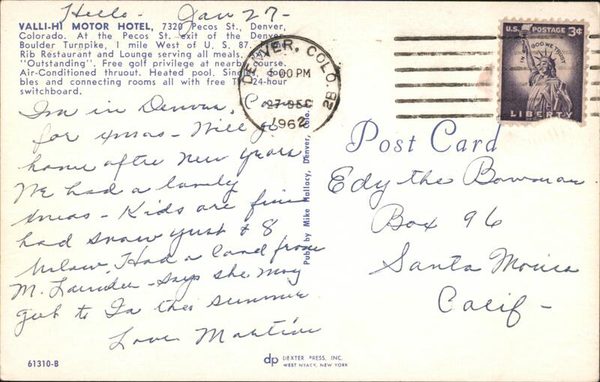 Hello Jan 27-
VALLI-HI MOTOR HOTEL, 7320 Pecos St., Denver,
Colorado. At the Pecos St. exit of the Denver
Boulder Turnpike, 1 mile West of U. S. 87.
Rib Restaurant and Lounge serving all meals.
"Outstanding". Free golf privilege at nearby course.
Air-Conditioned thruout. Heated pool.
bles and connecting rooms all with free 24-hour
switchboard.
I'm in Denver,
for xmas - Will go
home after New years
We had a lovely
Xmas - Kids are fine
had snow just & 8
below. Had a card from
M. says she may
get to Ia this summer
Love
61310-B
DENVER, COLO
2:00 PM
27 DEC
1962
U.S. POSTAGE 3¢
IN GOD WE TRUST
LIBERTY
Post Card
Edy the Bowman
Box 96
Santa Monica
Calif -
Pub. by Mike Mallory, Denver, Colo.
dp DEXTER PRESS, INC.
WEST NYACK, NEW YORK